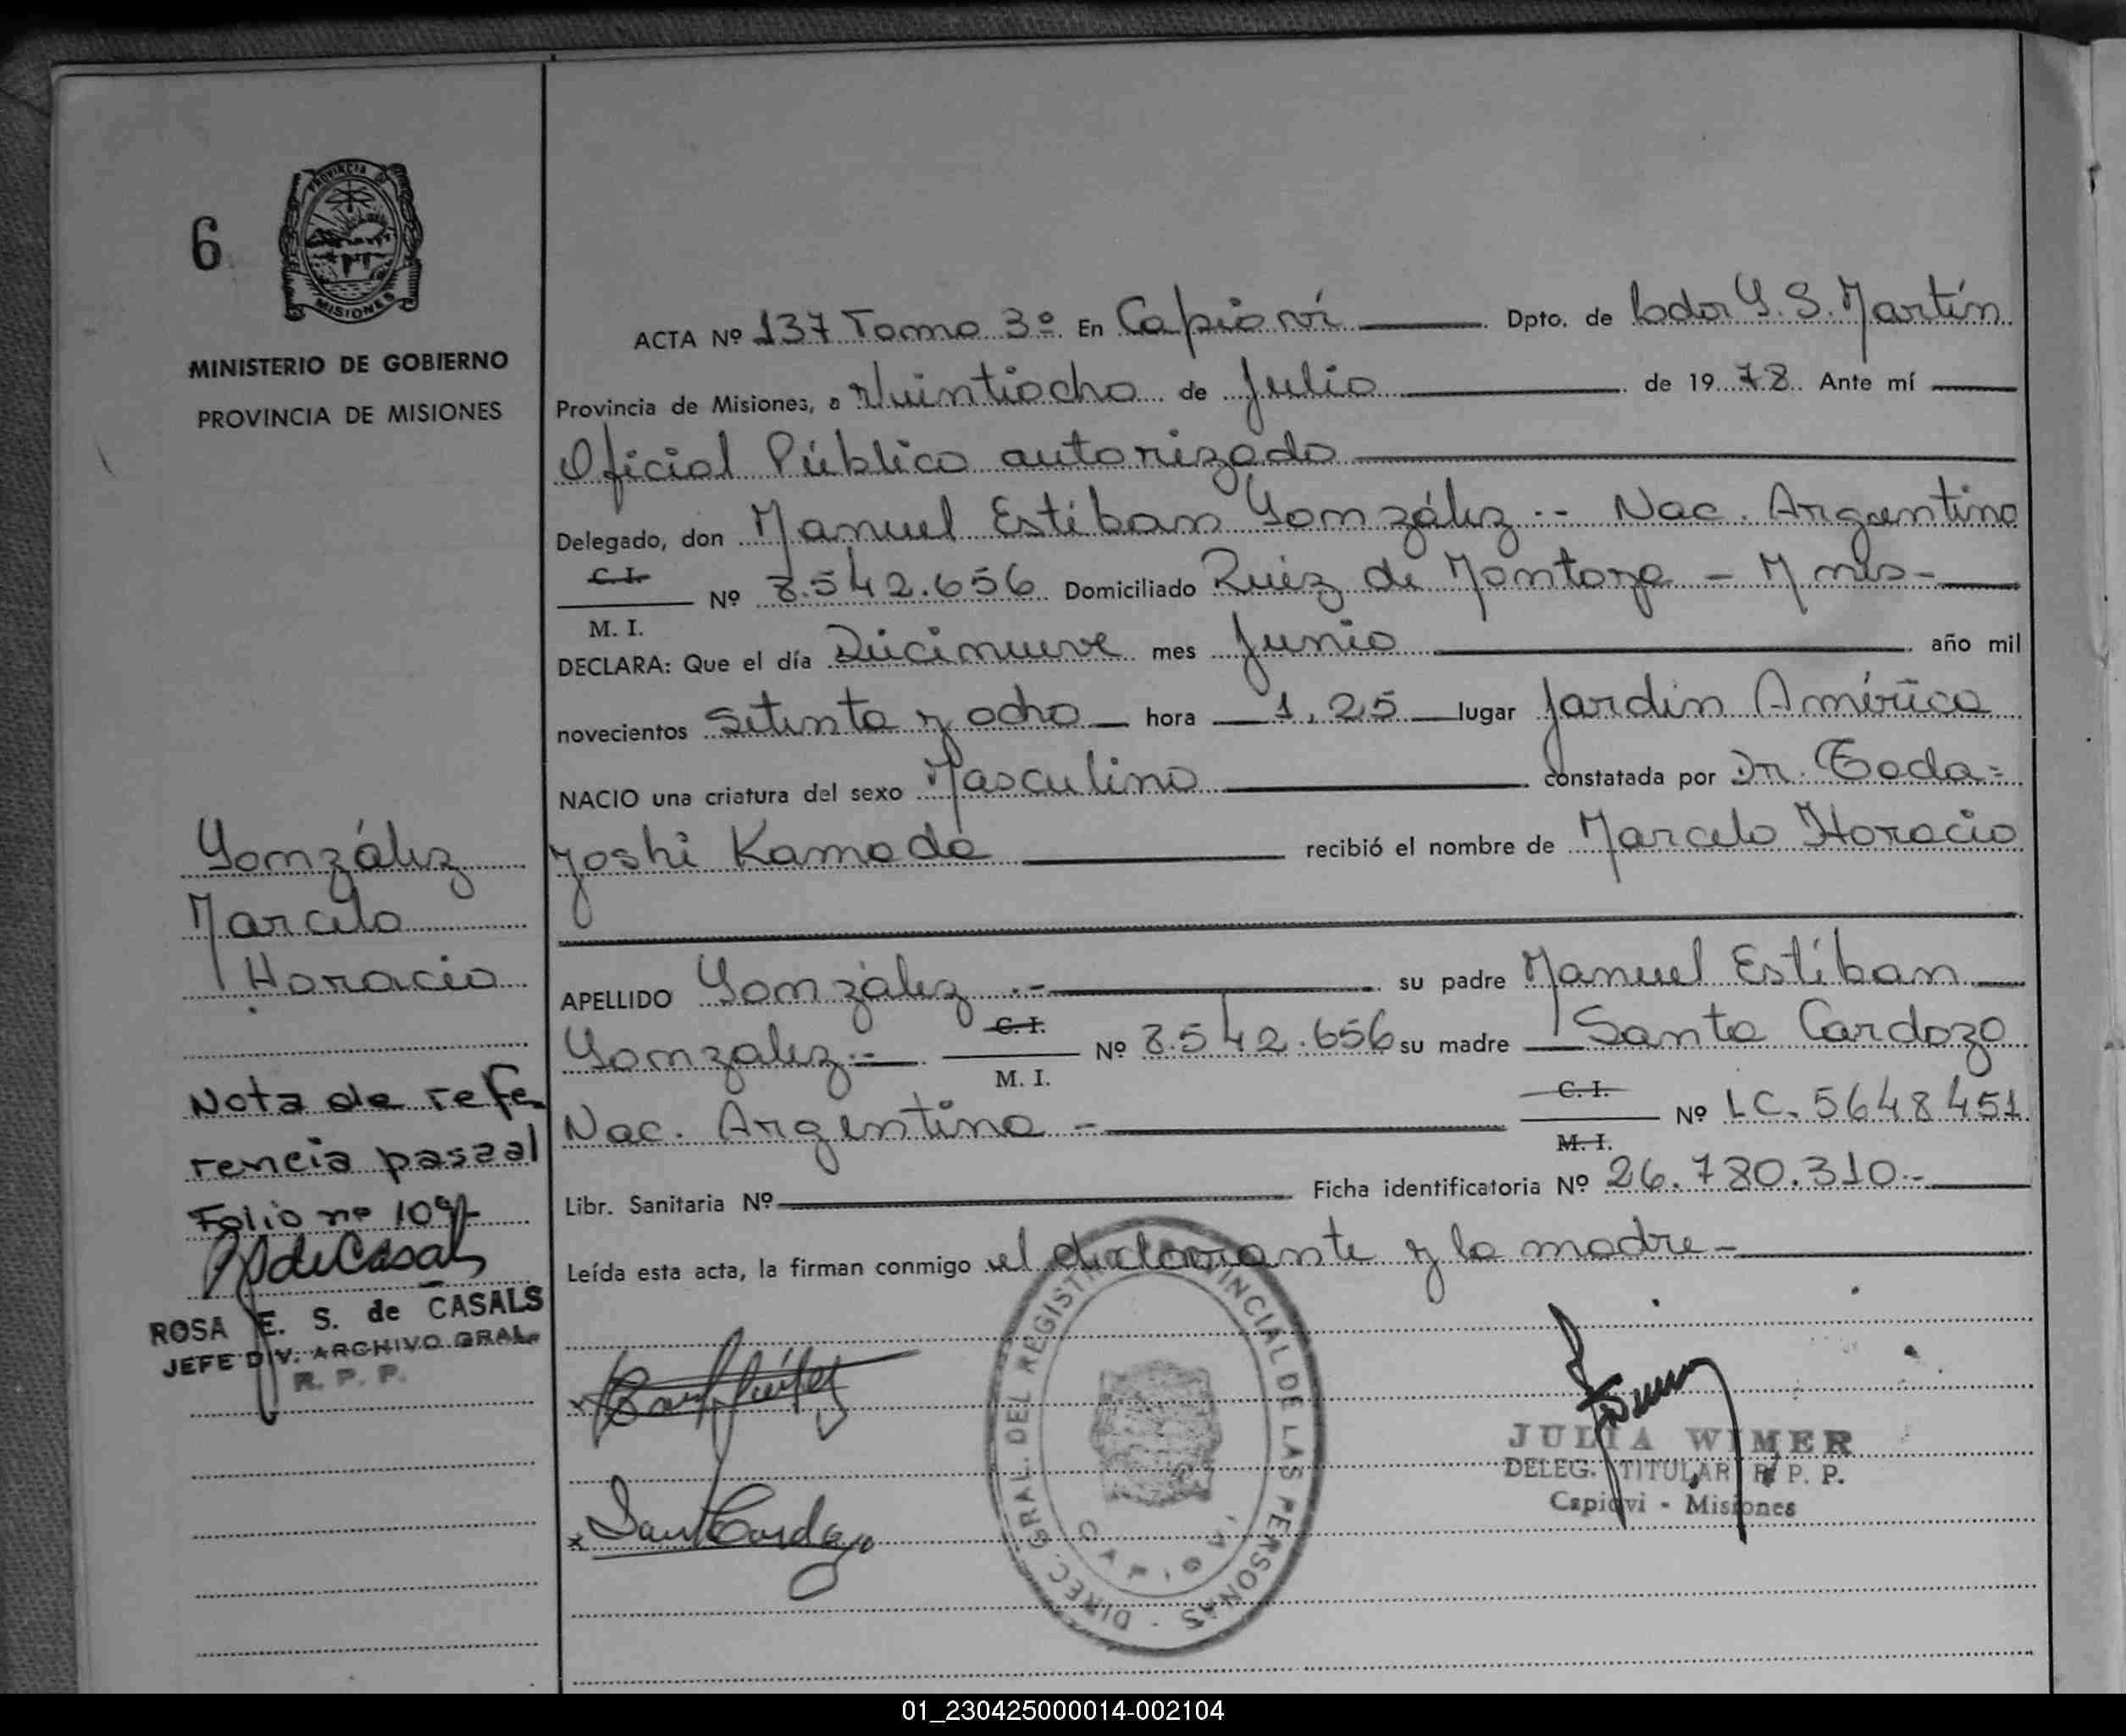 6
PROVINCIA DE
MISIONES
MINISTERIO DE GOBIERNO
PROVINCIA DE MISIONES
ACTA Nº 137 Tomo 3º En Capioví Dpto. de Lbdor G. S. Martín
Provincia de Misiones, a Veintiocho de Julio de 1978 Ante mí
Oficial Público autorizado
Delegado, don Manuel Esteban González.- Nac. Argentino
C. I.
Nº 8.542.656 Domiciliado Ruiz de Montoya - Mnes-
M. I.
DECLARA: Que el día Diecinueve mes Junio año mil
novecientos Setenta y ocho hora 1,25 lugar Jardín América
NACIO una criatura del sexo Masculino constatada por Dr. Toda=
yoshi Kamada recibió el nombre de Marcelo Horacio
González
Marcelo
Horacio
APELLIDO González .- su padre Manuel Esteban
C. I.
González.- Nº 8.542.656 su madre Santa Cardozo
M. I.
C. I.
Nac. Argentina - Nº LC. 5648451
M. I.
Libr. Sanitaria Nº Ficha identificatoria Nº 26.780.310.-
Leída esta acta, la firman conmigo el declarante y la madre-
Nota de refe
rencia pasa al
Folio nº 109
RdeCasals
ROSA E. S. de CASALS
JEFE DIV. ARCHIVO GRAL.
R. P. P.
DIREC. GRAL. DEL REGISTRO PROVINCIAL DE LAS PERSONAS
CAPIOVI
Sant Cardozo
JULIA WIMER
DELEG. TITULAR R. P. P.
Capiovi - Misiones
01_230425000014-002104